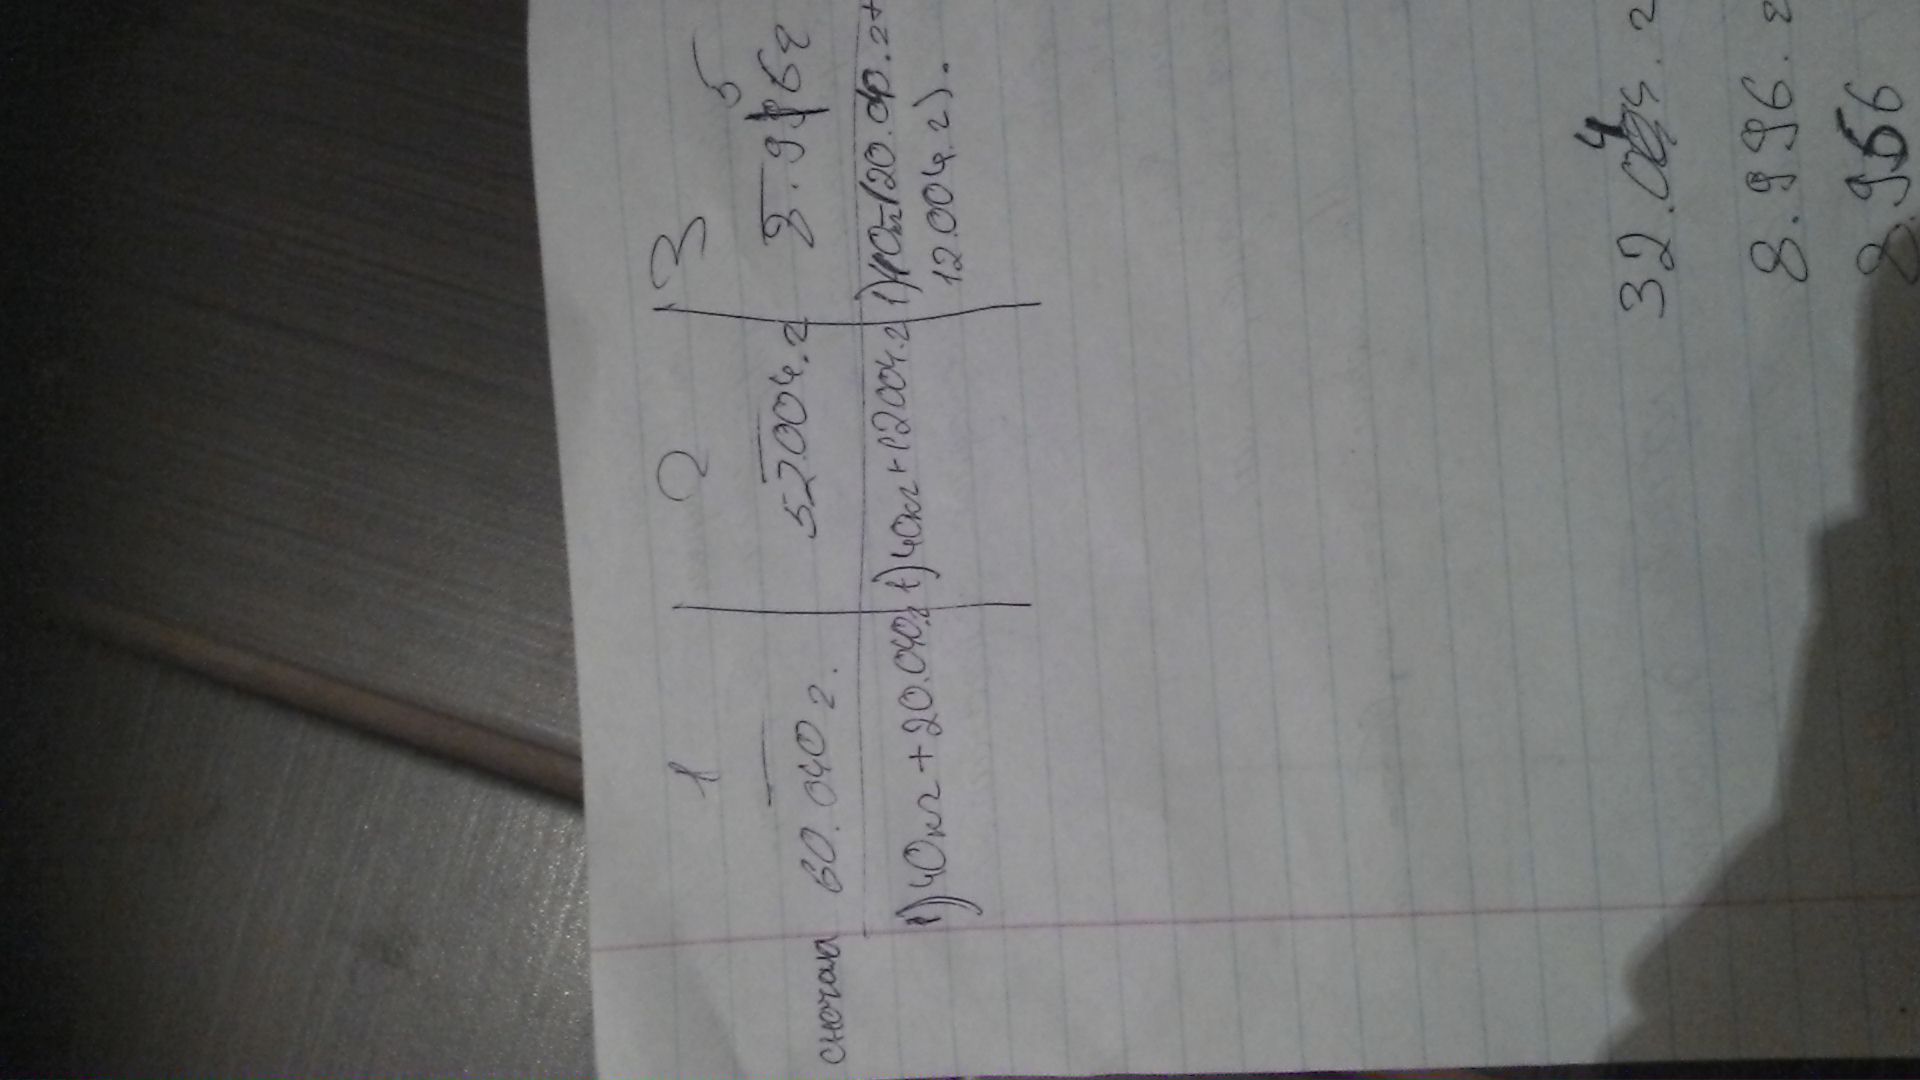 1 2 3
сначала 60.040 г. 52004.г 8.956г
5
1) 40кг + 20.040г 1) 40кг + 12004.г 1) 40кг-(20.040.г+
12.004.г).
32.04.г
8.996.г
8.956